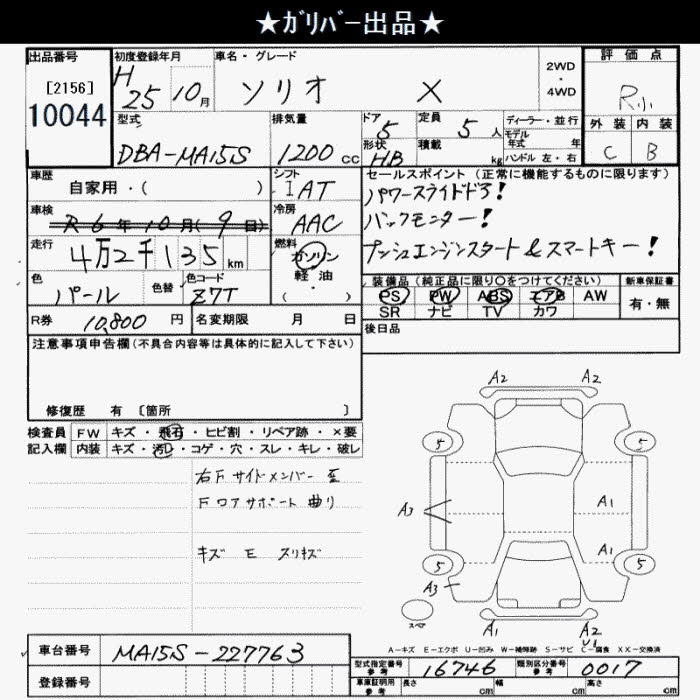 ★ガリバー出品★
出品番号 初度登録年月 車名・グレード 2WD・4WD 評価点
[2156]
10044
H 25 10月 ソリオ X R小
外装 内装
C B
型式 排気量 ドア 定員 ディーラー・並行
DBA-MA15S 1200cc 5 5人 モデル年式 年
形状 積載
HB kg ハンドル 左・右
車歴 シフト セールスポイント(正常に機能するものに限ります)
自家用・( ) IAT パワースライドドア!
車検 冷房
R6年10月(9日) AAC バックモニター!
走行 燃料
4万2千135km ガソリン プッシュエンジンスタート&スマートキー!
軽油
・( )
色 色替 色コード
パール Z7T
装備品(純正品に限り○をつけてください) 新車保証書
PS PW ABS エアB AW 有・無
SR ナビ TV カワ
R券 10,800円 名変期限 月 日 後日品
注意事項申告欄(不具合内容等は具体的に記入して下さい)
修復歴 有 〔箇所 〕
検査員 FW キズ・飛石・ヒビ割・リペア跡・×要
記入欄 内装 キズ・汚れ・コゲ・穴・スレ・キレ・破レ
右Fサイドメンバー 歪
Fロアサポート曲り
キズ E スリキズ
A2 A2
5 5
A3 A1
A1
5 5
A3
スペア
A2 A2
U1
A-キズ E-エクボ U-凹み W-補修跡 S-サビ C-腐食 XX-交換済
車台番号 MA15S-227763
型式指定番号 参考 16746 類別区分番号 参考 0017
登録番号
車庫証明用 参考 長さ cm 幅 cm 高さ cm